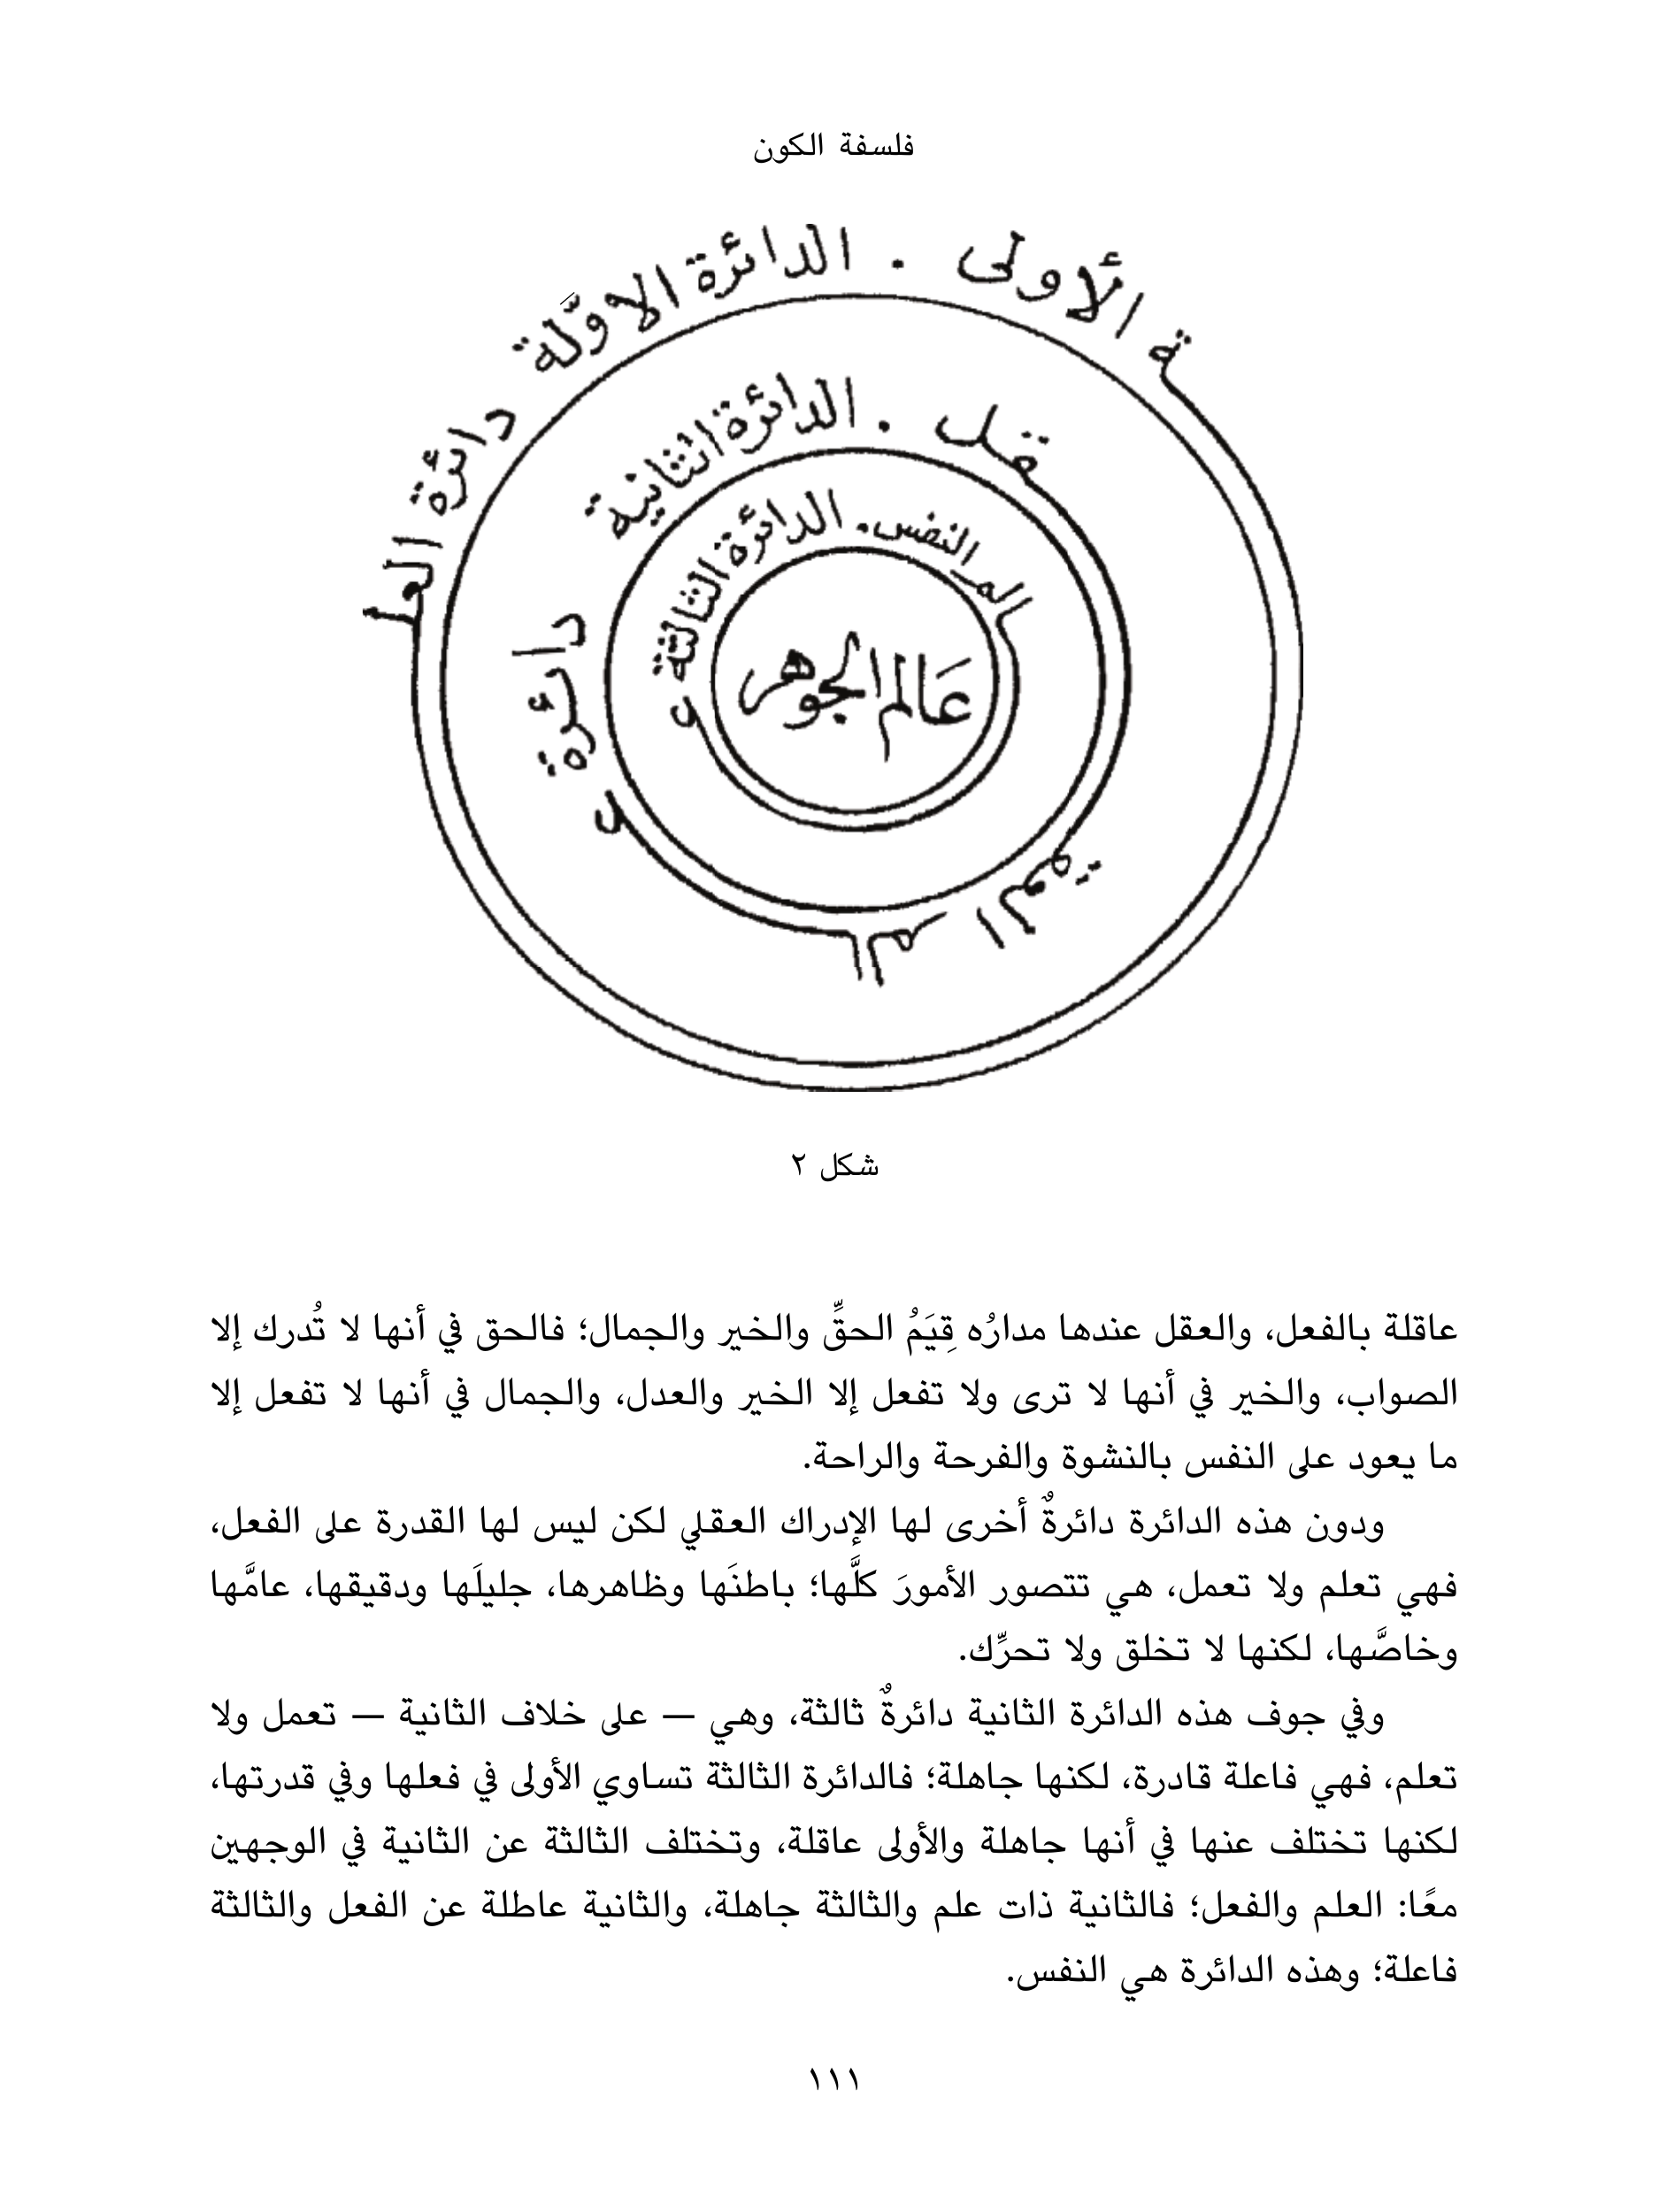 فلسفة الكون
الدائرة الاوَّلة دائرة العلـ ـة الأولى .
الدائرة الثانية دائرة عـ ـالم القوة
ـقل .
الدائرة الثالثة عـ ـالم النفس.
عَالم الجوهر
شكل ٢
عاقلة بالفعل، والعقل عندها مدارُه قِيَمُ الحقِّ والخير والجمال؛ فالحق في أنها لا تُدرك إلا
الصواب، والخير في أنها لا ترى ولا تفعل إلا الخير والعدل، والجمال في أنها لا تفعل إلا
ما يعود على النفس بالنشوة والفرحة والراحة.
ودون هذه الدائرة دائرةٌ أخرى لها الإدراك العقلي لكن ليس لها القدرة على الفعل،
فهي تعلم ولا تعمل، هي تتصور الأمورَ كلَّها؛ باطنَها وظاهرها، جليلَها ودقيقها، عامَّها
وخاصَّها، لكنها لا تخلق ولا تحرِّك.
وفي جوف هذه الدائرة الثانية دائرةٌ ثالثة، وهي — على خلاف الثانية — تعمل ولا
تعلم، فهي فاعلة قادرة، لكنها جاهلة؛ فالدائرة الثالثة تساوي الأولى في فعلها وفي قدرتها،
لكنها تختلف عنها في أنها جاهلة والأولى عاقلة، وتختلف الثالثة عن الثانية في الوجهين
معًا: العلم والفعل؛ فالثانية ذات علم والثالثة جاهلة، والثانية عاطلة عن الفعل والثالثة
فاعلة؛ وهذه الدائرة هي النفس.
١١١